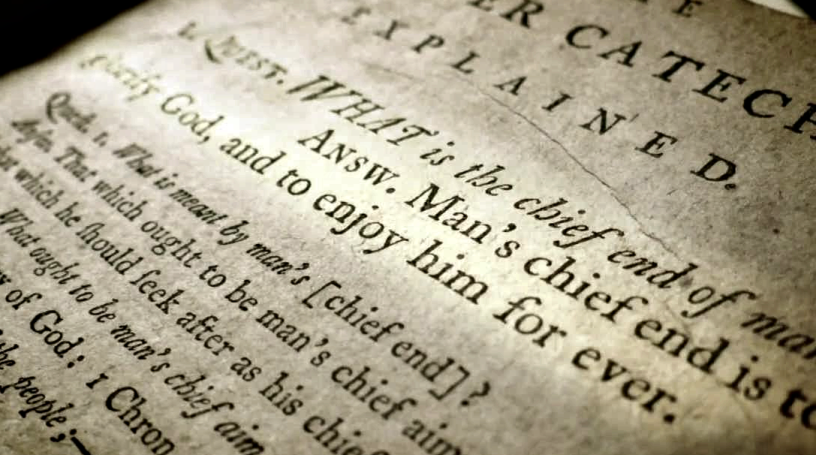 ER CATECH
EXPLAINED.
1. QUEST. WHAT is the chief end of man
ANSW. Man's chief end is to
glorify God, and to enjoy him for ever.
Quest. 1. What is meant by man's [chief end]?
Answ. That which ought to be man's chief aim
which he ſhould ſeek after as his chief
What ought to be man's chief aim
of God: 1 Chron
people;—